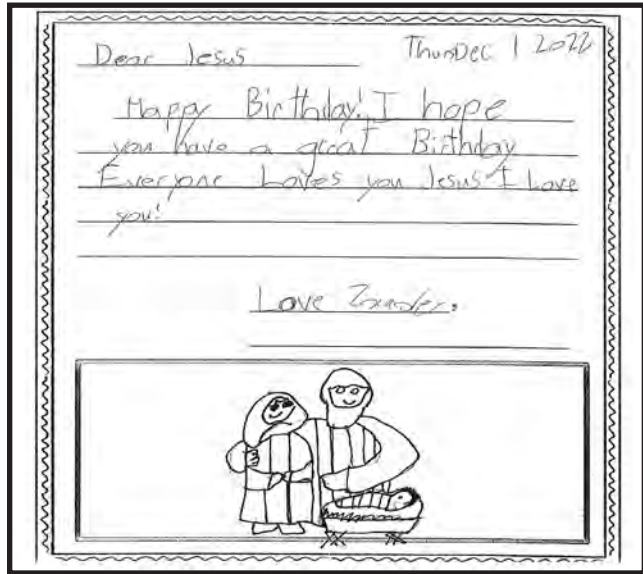 Dear Jesus ThursDec 1 2022
Happy Birthday! I hope
you have a great Birthday
Everyone Loves you Jesus I Love
you!
Love Zxander.